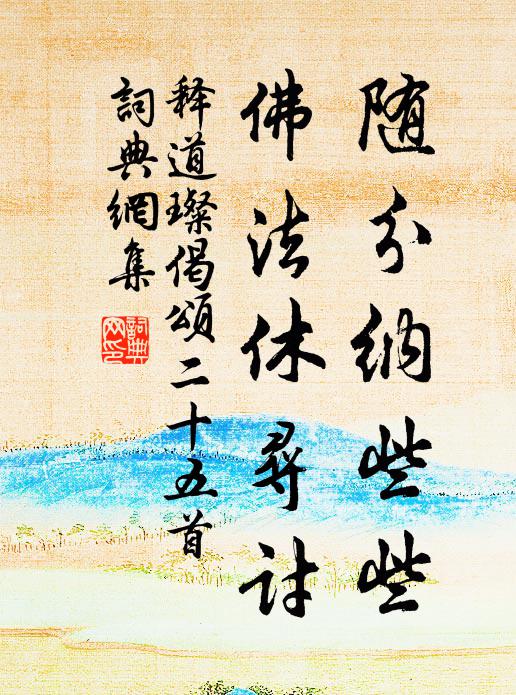 随分纳些些
佛法休寻讨
释道璨偈颂二十五首
詞典網集
詞典
网印